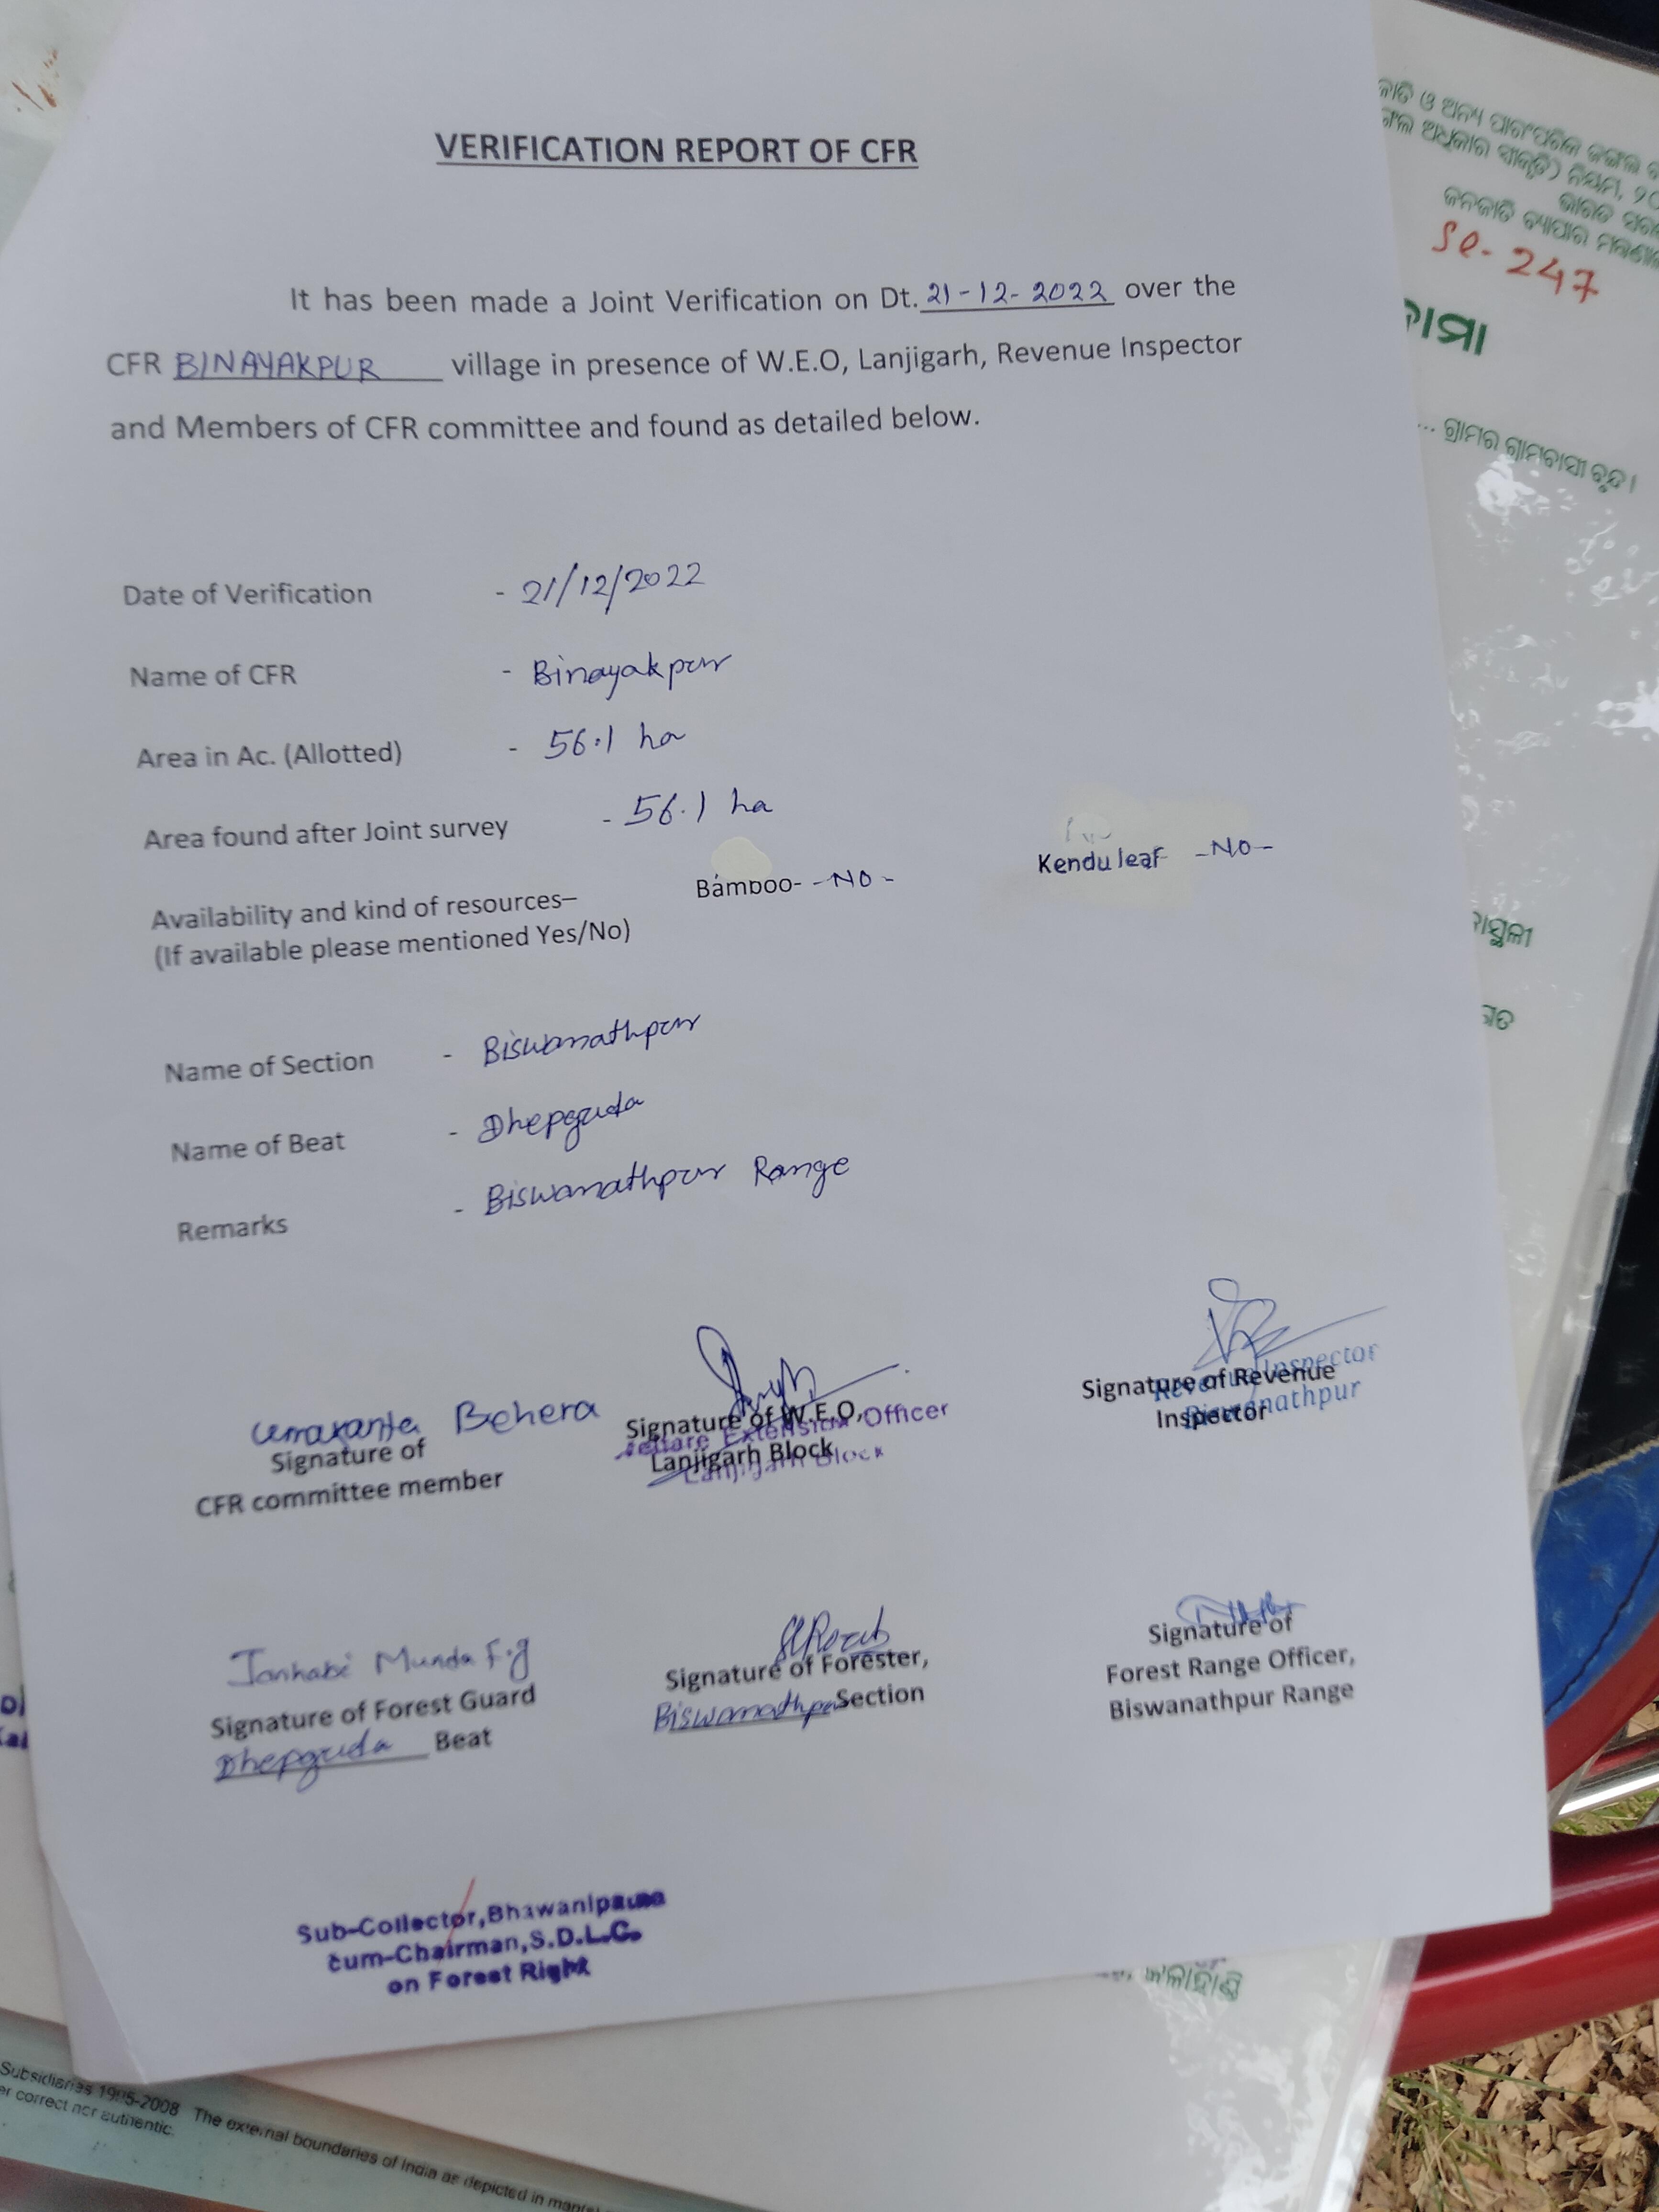 VERIFICATION REPORT OF CFR
It has been made a Joint Verification on Dt. 21-12-2022 over the
CFR BINAYAKPUR village in presence of W.E.O, Lanjigarh, Revenue Inspector
and Members of CFR committee and found as detailed below.
Date of Verification - 21/12/2022
Name of CFR - Binayakpur
Area in Ac. (Allotted) - 56.1 ha
Area found after Joint survey - 56.1 ha
Availability and kind of resources– Bamboo- -NO- Kendu leaf -NO-
(If available please mentioned Yes/No)
Name of Section - Biswanathpur
Name of Beat - Dhepguda
Remarks - Biswanathpur Range
Behera
Signature of
CFR committee member
Signature of W.E.O,
Extension Officer
Lanjigarh Block
Lanjigarh Block
Signature of Revenue
Revenue Inspector
Inspector
Biswanathpur
Janhabi Munda F.g
Signature of Forest Guard
Dhepguda Beat
Signature of Forester,
Biswanathpur Section
Signature of
Forest Range Officer,
Biswanathpur Range
Sub-Collector, Bhawanipatna
cum-Chairman, S.D.L.C.
on Forest Right
ଜାତି ଓ ଅନ୍ୟ ପାରଂପରିକ ଜଙ୍ଗଲ
ଅଧିକାର ସ୍ୱୀକୃତି) ନିୟମ, ୨୦
ଭାରତ
ଜନଜାତି ବ୍ୟାପାର
Sl- 247
... ଗ୍ରାମର ଗ୍ରାମବାସୀ ବୃନ୍ଦ।
Subsidiaries 1995-2008 The external boundaries of India as depicted in
er correct nor authentic.